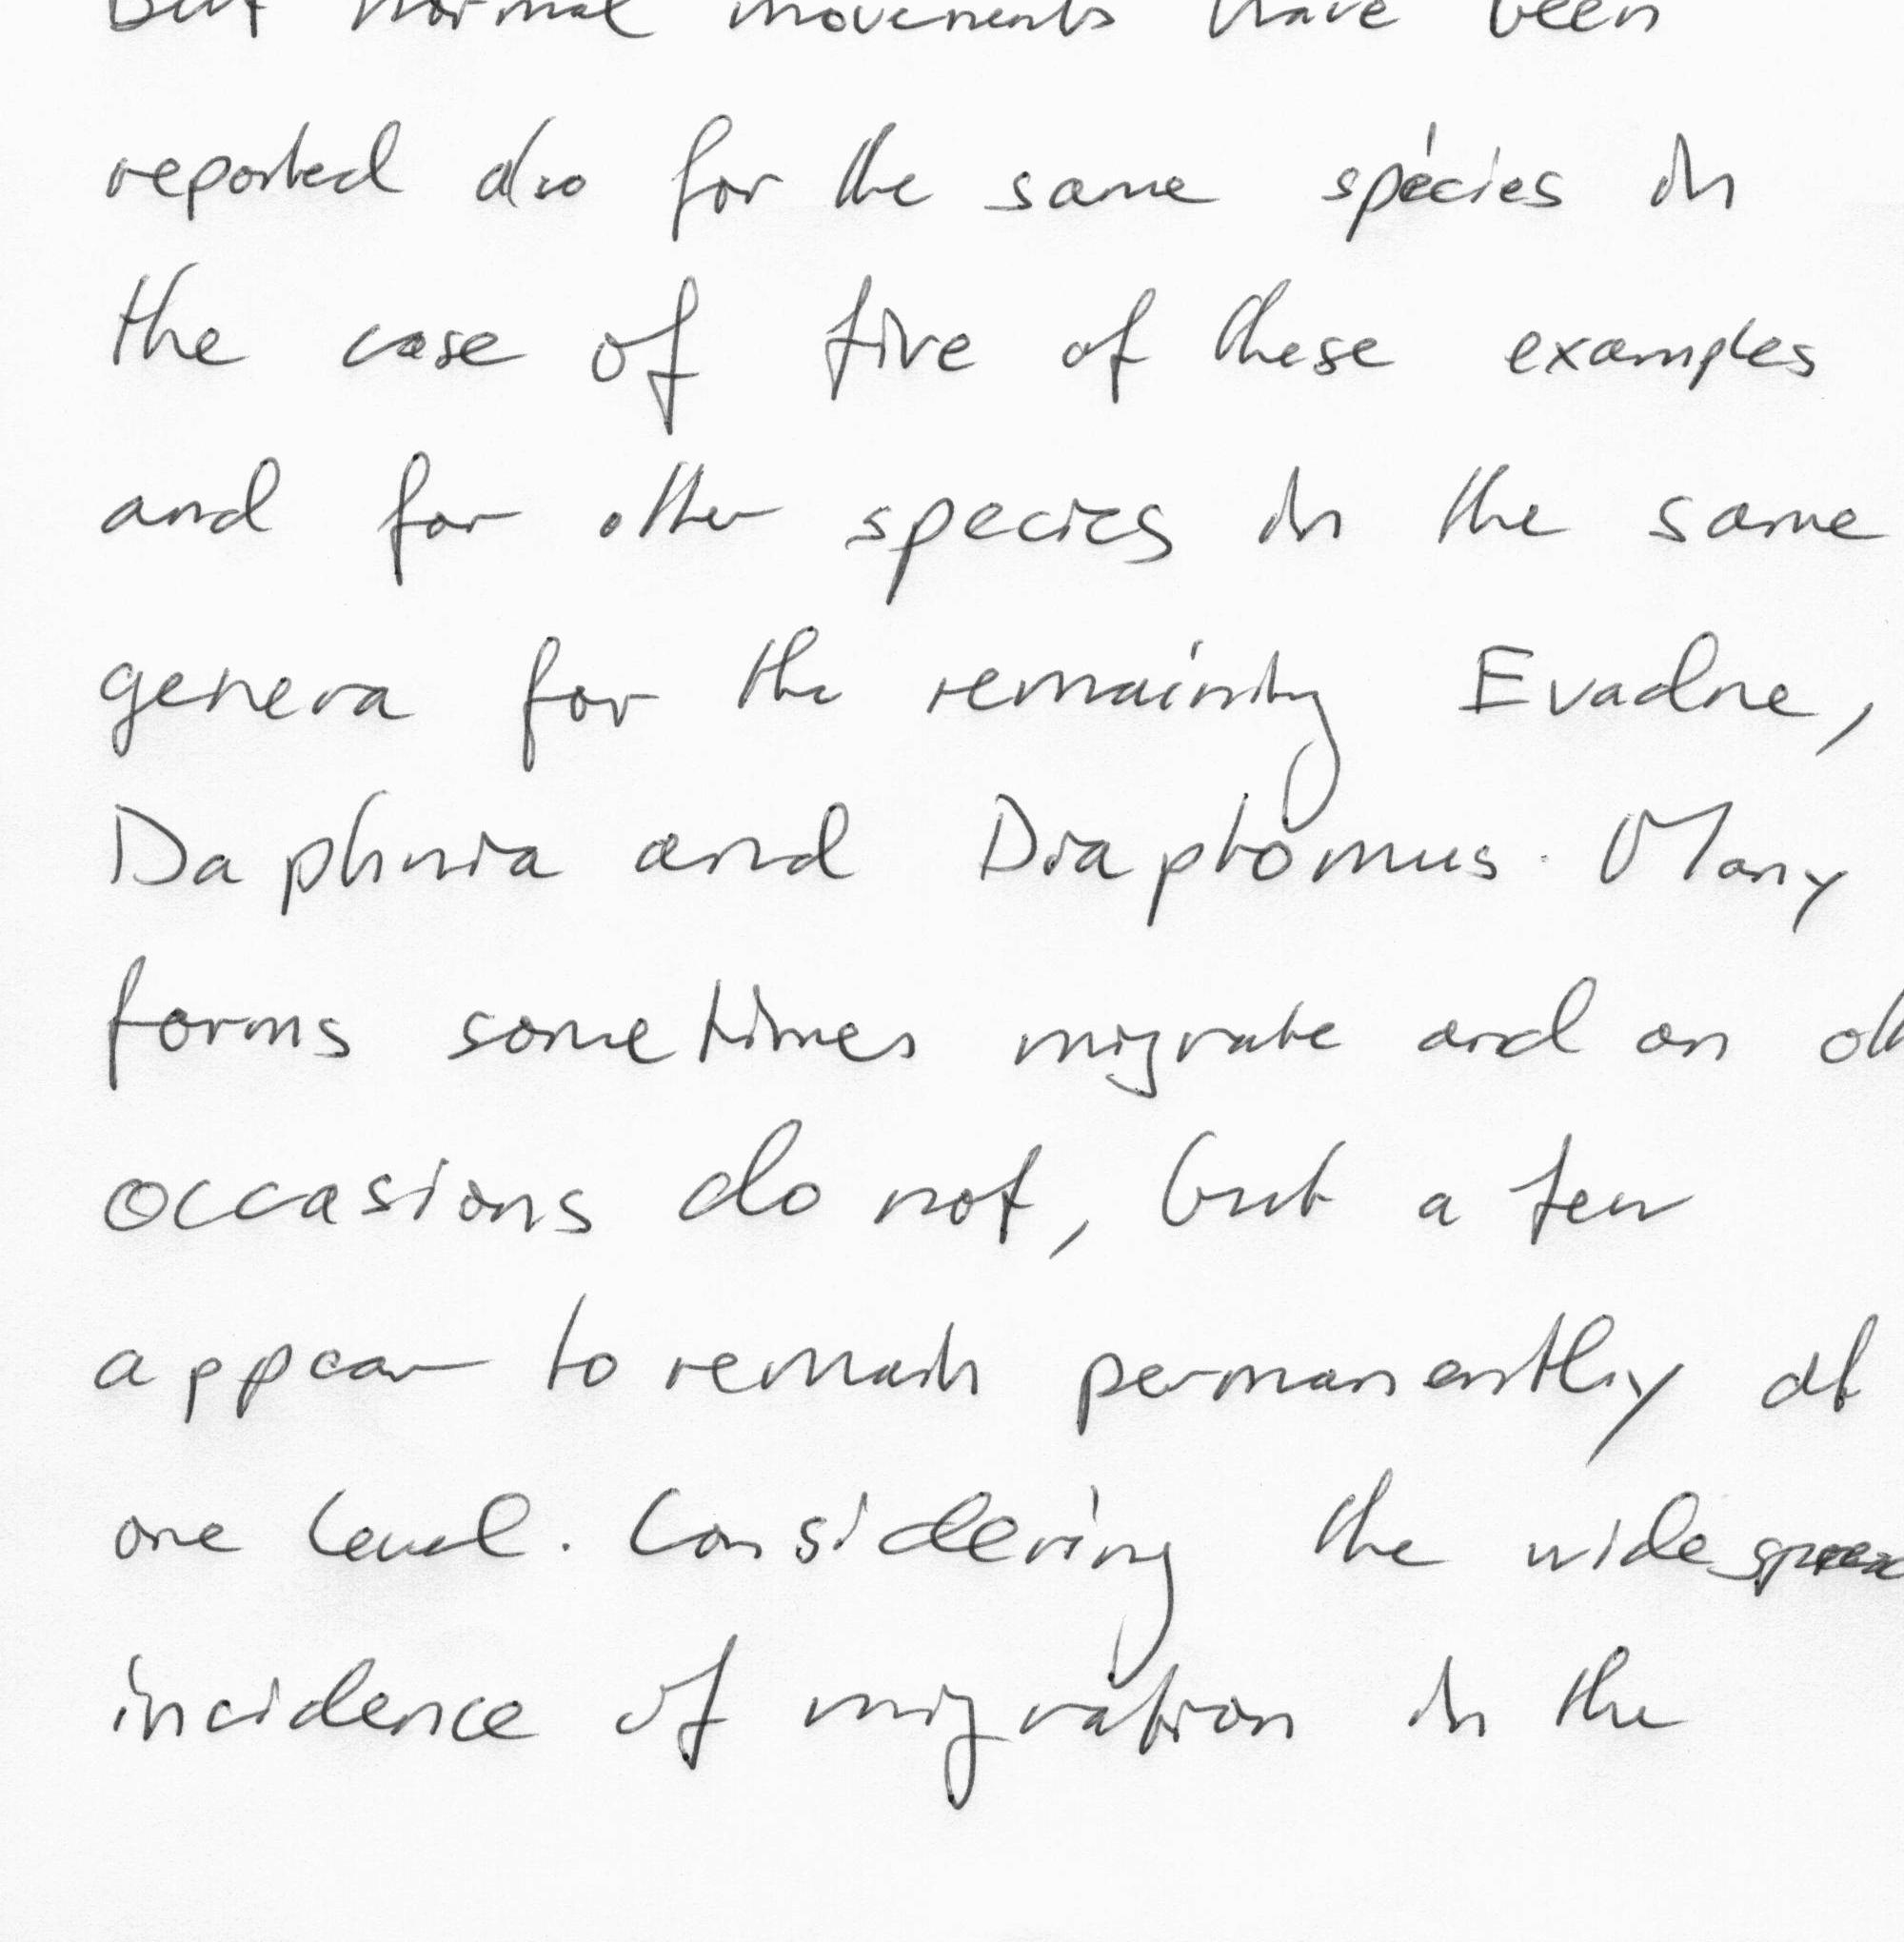 But normal movements have been
reported also for the same species in
the case of five of these examples
and for other species in the same
genera for the remaining Evadne,
Daphnia and Diaptomus. Many
forms sometimes migrate and on
occasions do not, but a few
appear to remain permanently at
one level. Considering the
incidence of migration in the